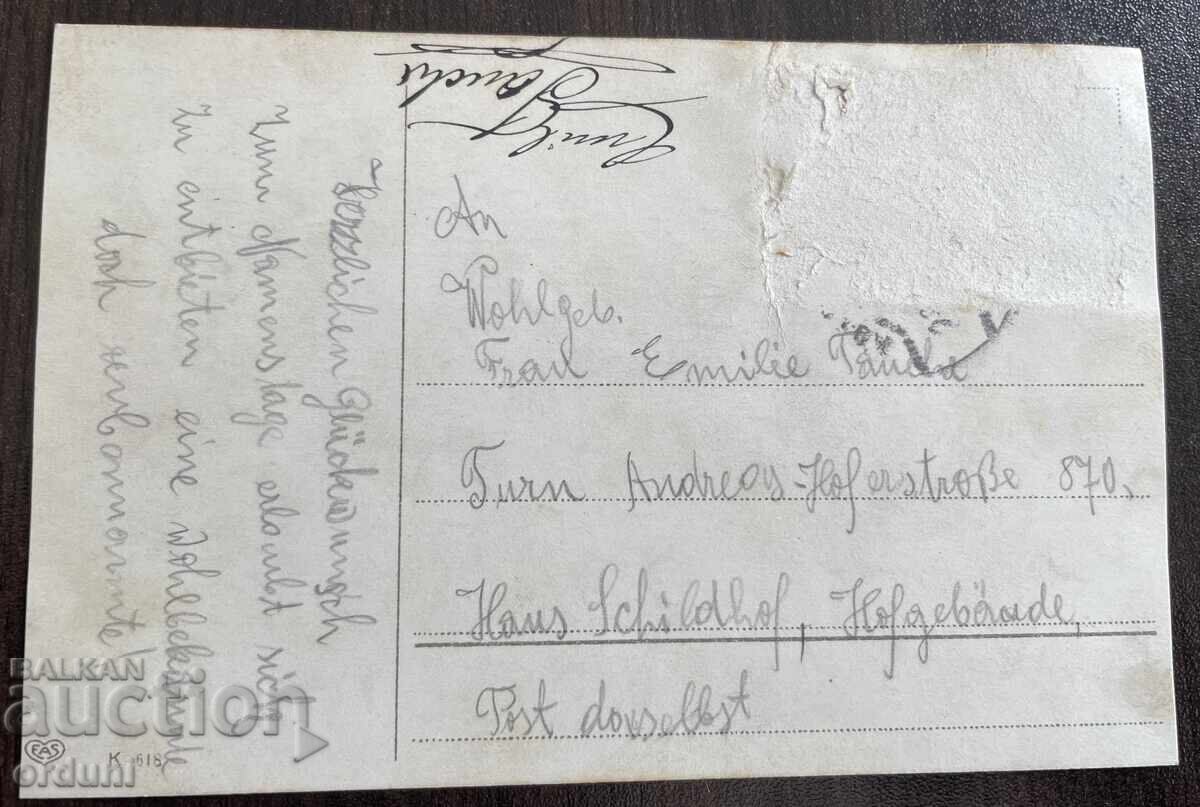 Herzlichen Glückwunsch
zum Namenstage erlaubt sich
zu entbieten eine Wohlbekannte
doch
Emilie
An
Wohlgeb.
Frau Emilie
Turn Andreas-Hoferstraße 870,
Haus Schildhof, Hofgebäude,
Post daselbst
EAS
K 618
BALKAN
auction
orduni